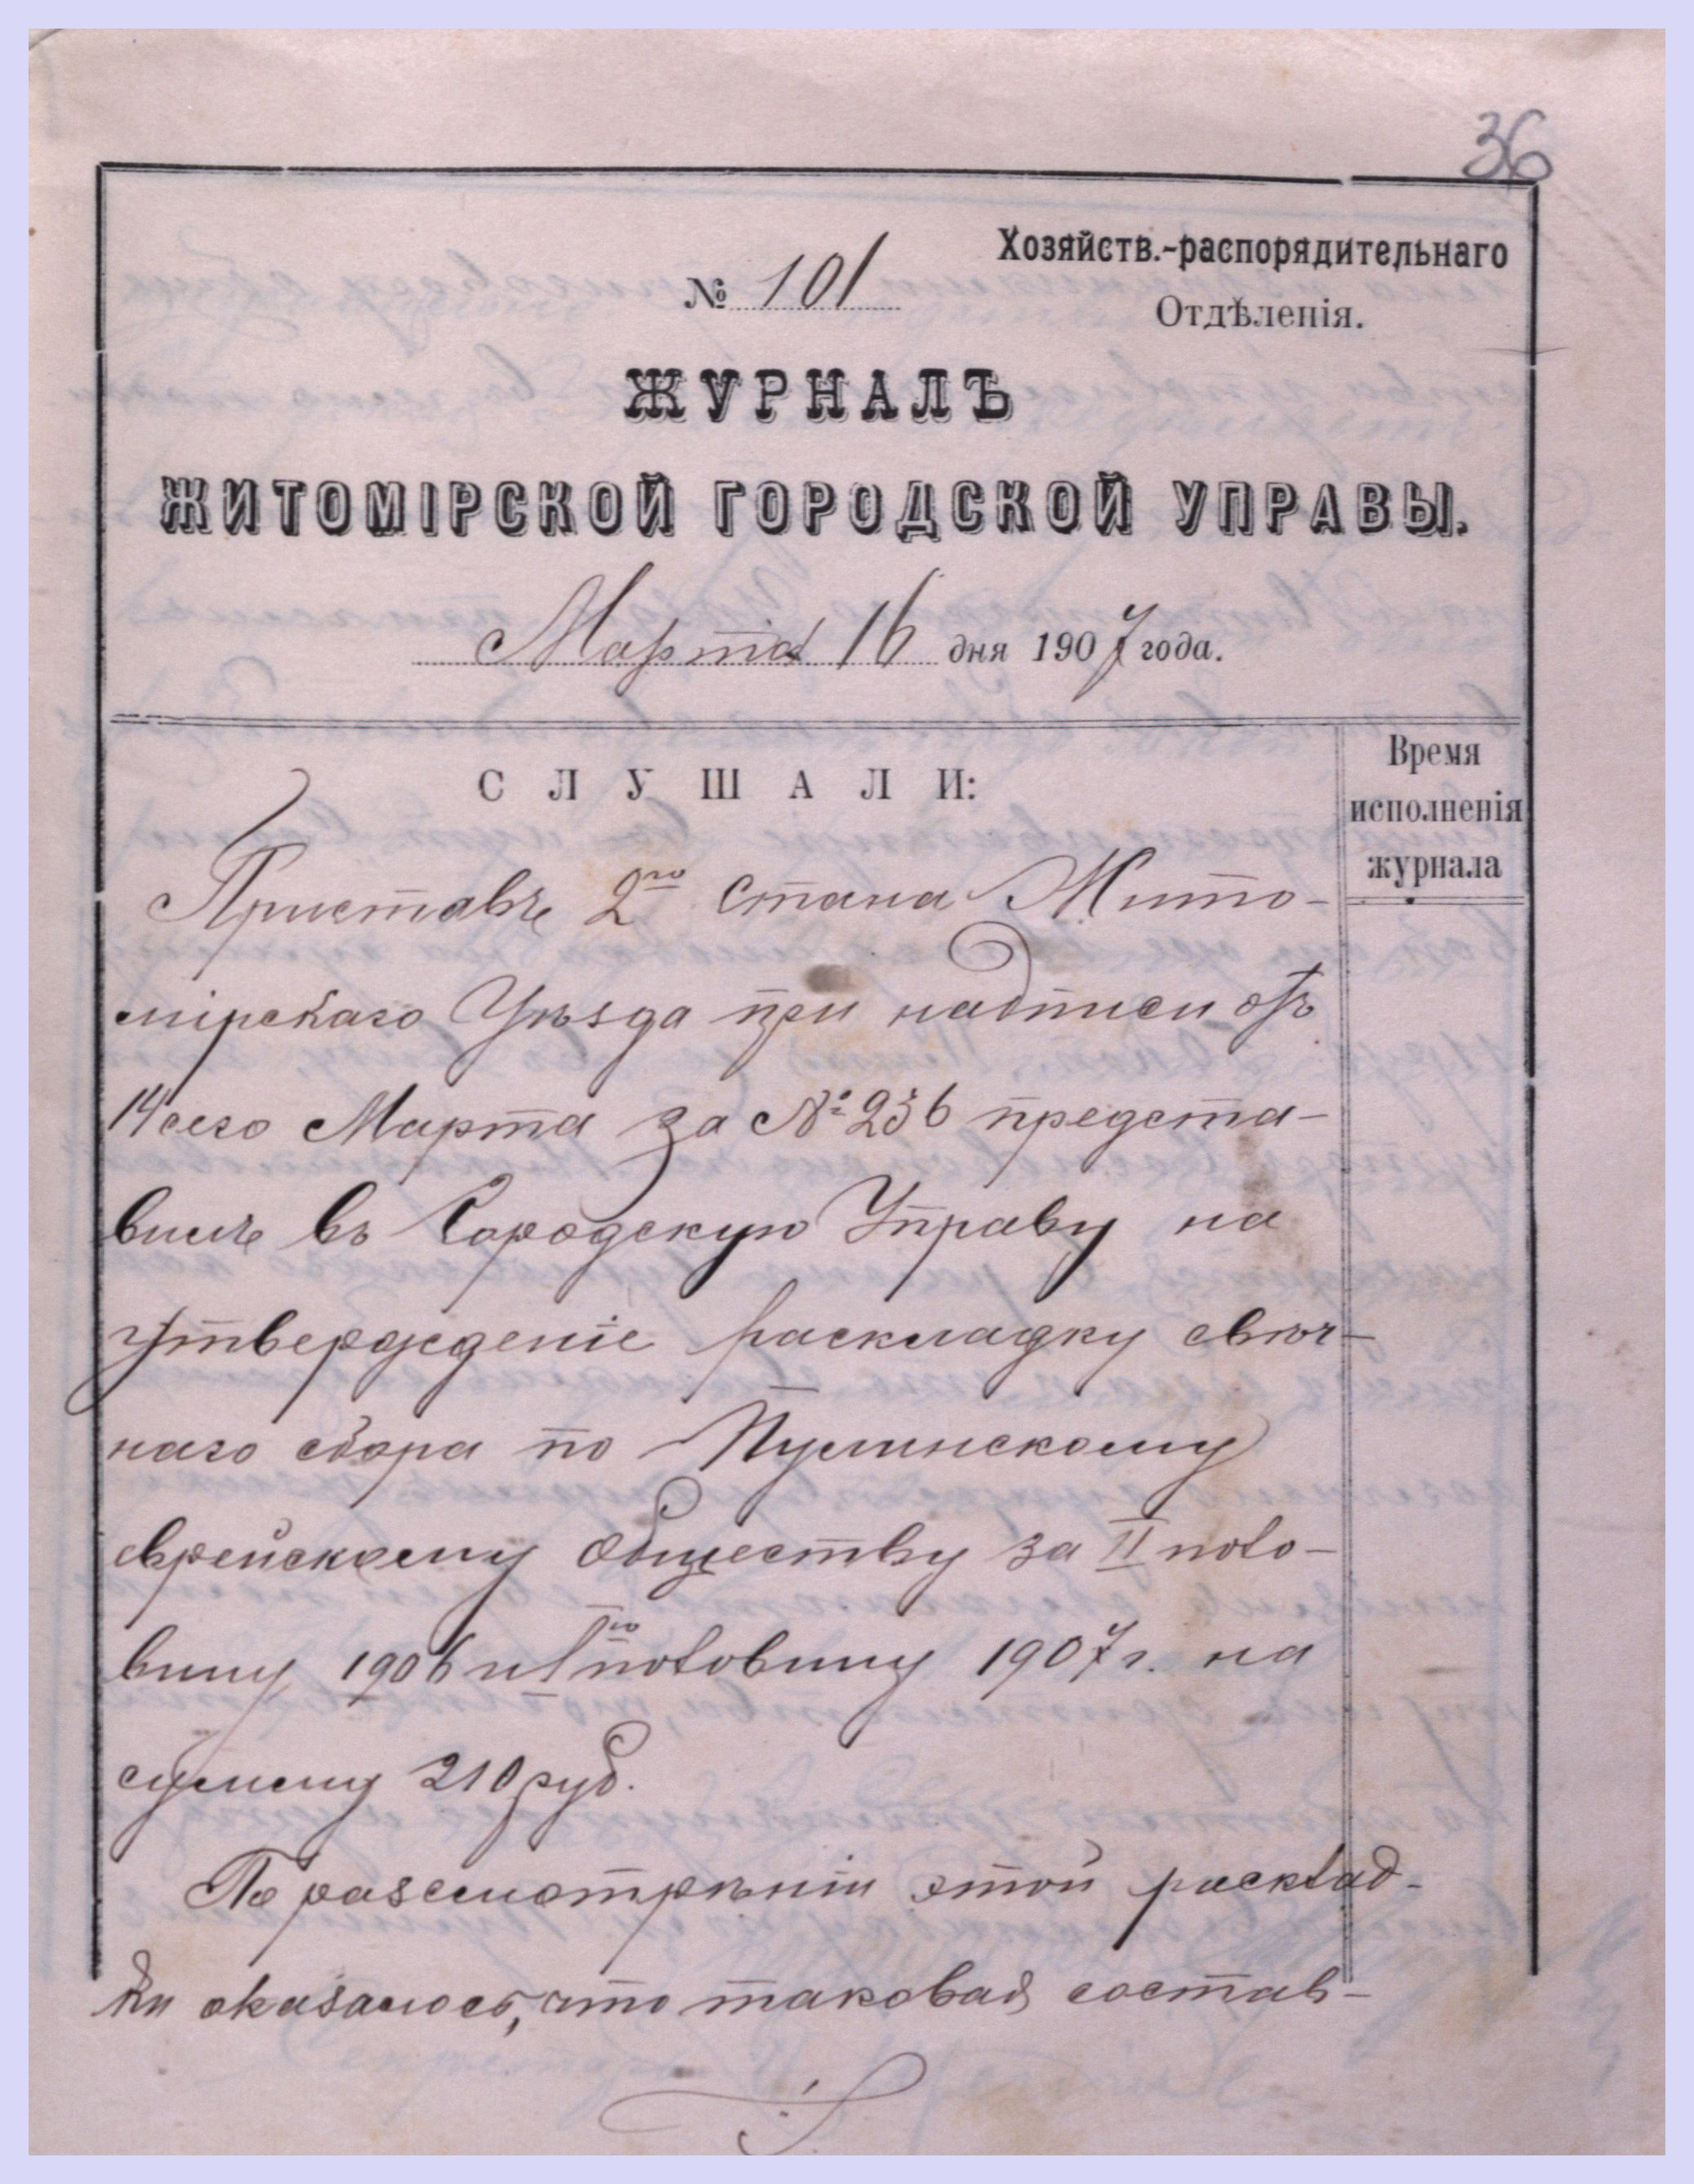 36
Хозяйств.-распорядительнаго
№ 101
Отдѣленія.
ЖУРНАЛЪ
ЖИТОМІРСКОЙ ГОРОДСКОЙ УПРАВЫ.
Марта 16 дня 1907 года.
СЛУШАЛИ:
Время
исполненія
журнала
Приставъ 2го стана Жито-
мірскаго Уѣзда при надписи отъ
14 сего Марта за № 236 предста-
вилъ въ Городскую Управу на
утвержденіе раскладку свѣч-
наго сбора по Пулинскому
еврейскому обществу за II поло-
вину 1906 и Iю половину 1907 г. на
сумму 210 руб.
По разсмотрѣніи этой расклад-
ки оказалось, что таковая состав-